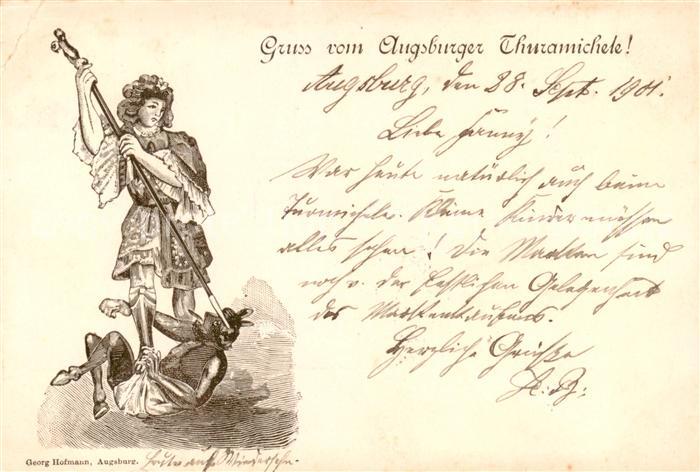 Gruss vom Augsburger Thuramichele!
Augsburg, den 28. Sept. 1901.
Liebe Fanny!
War heute natürlich auch beim
Turmichele. Kleine Kinder müssen
alles sehen! Die Marken sind
noch v. der festlichen Gelegenheit
des Markenkaufens.
Herzliche Grüsse
A. B.
Georg Hofmann, Augsburg.
auf Wiedersehn.